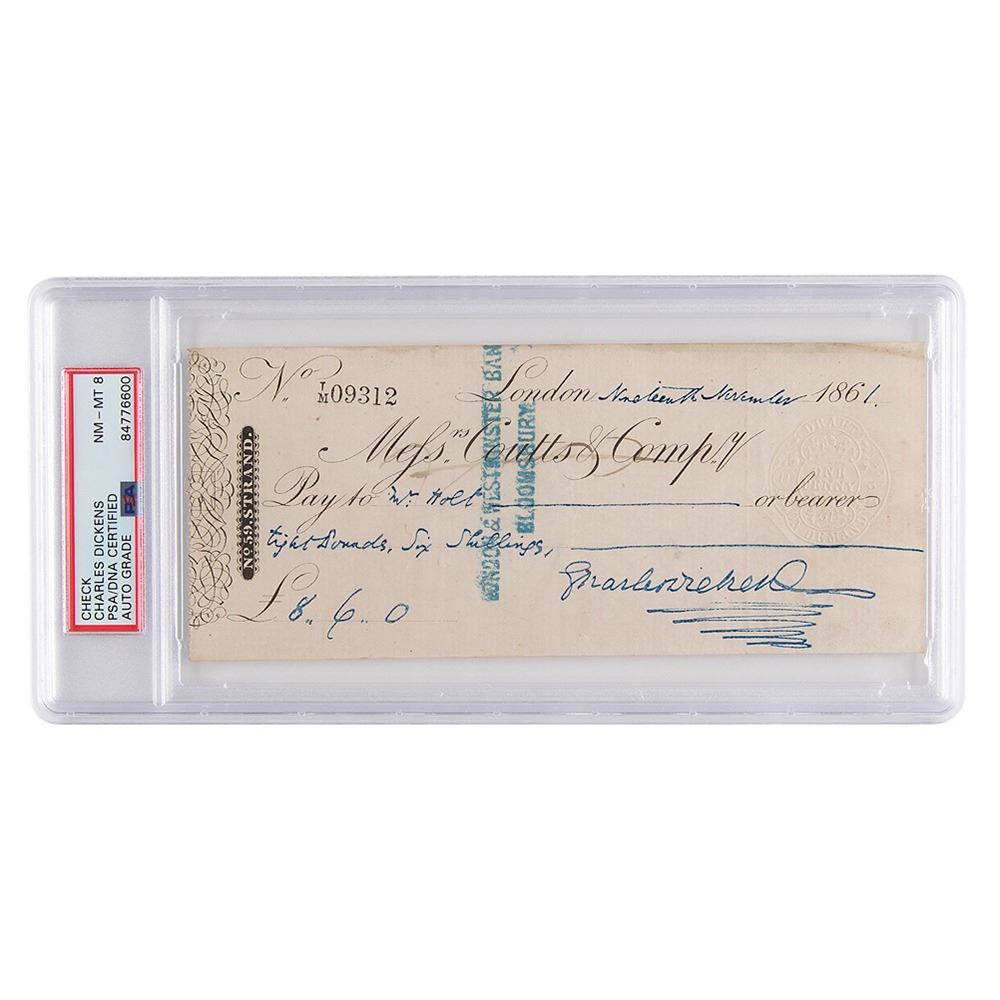 CHECK
CHARLES DICKENS
PSA/DNA CERTIFIED
AUTO GRADE
NM – MT 8
PSA
84776600
No. I/M 09312
London Nineteenth November 1861.
Messrs. Coutts & Compy
Pay to Mr. Holt or bearer
Eight Pounds, Six Shillings,
£8.. 6.. 0
Charles Dickens
No. 59, STRAND.
LONDON & WESTMINSTER BAN
BLOOMSBURY.